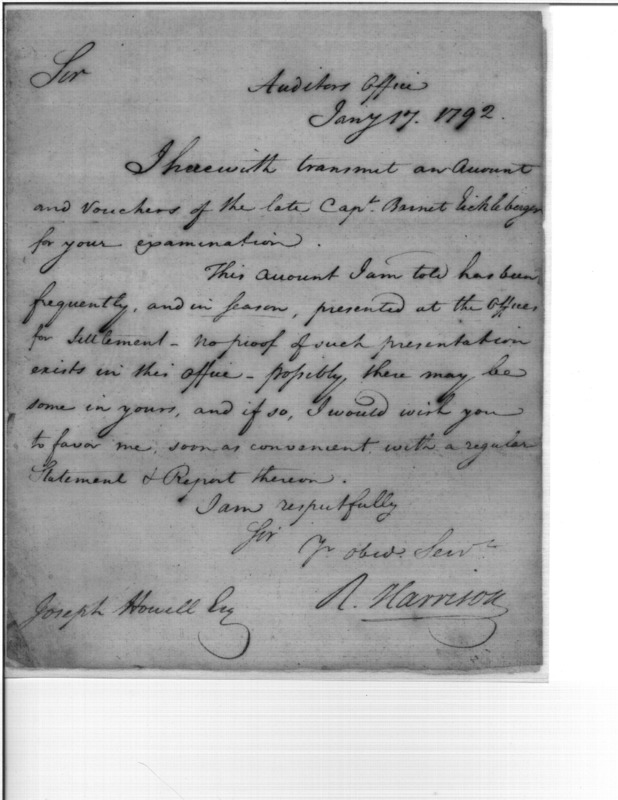 Sir
Auditors Office
Jany 17. 1792.
I herewith transmit an Account
and Vouchers of the late Capt. Barnet Eickleberger
for your examination.
This account I am told has been
frequently, and in season, presented at the Offices
for settlement - no proof of such presentation
exists in this office - possibly there may be
some in yours, and if so, I would wish you
to favor me, soon as convenient, with a regular
Statement & Report thereon.
I am respectfully
Sir
Yr. obed. Servt.
R. Harrison
Joseph Howell Esq